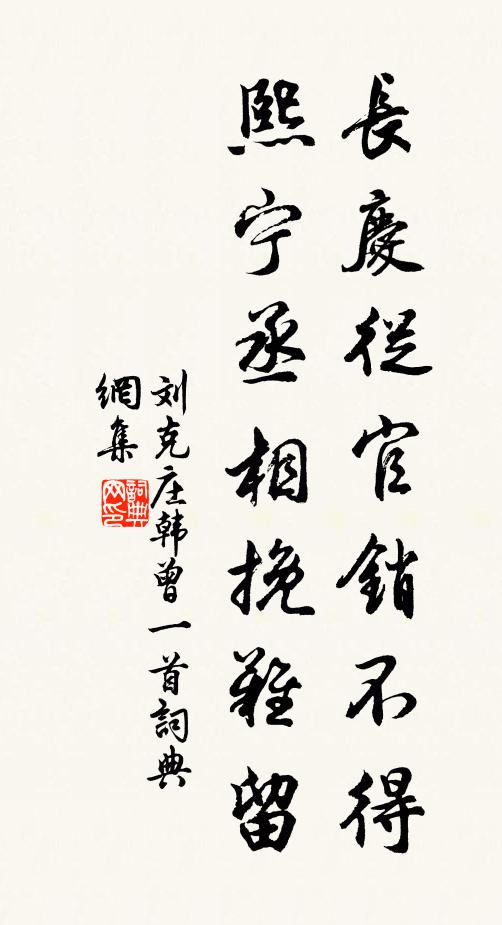 長慶從官銷不得
熙宁丞相挽難留
刘克庄韩曾一首詞典
網集
詞典网印